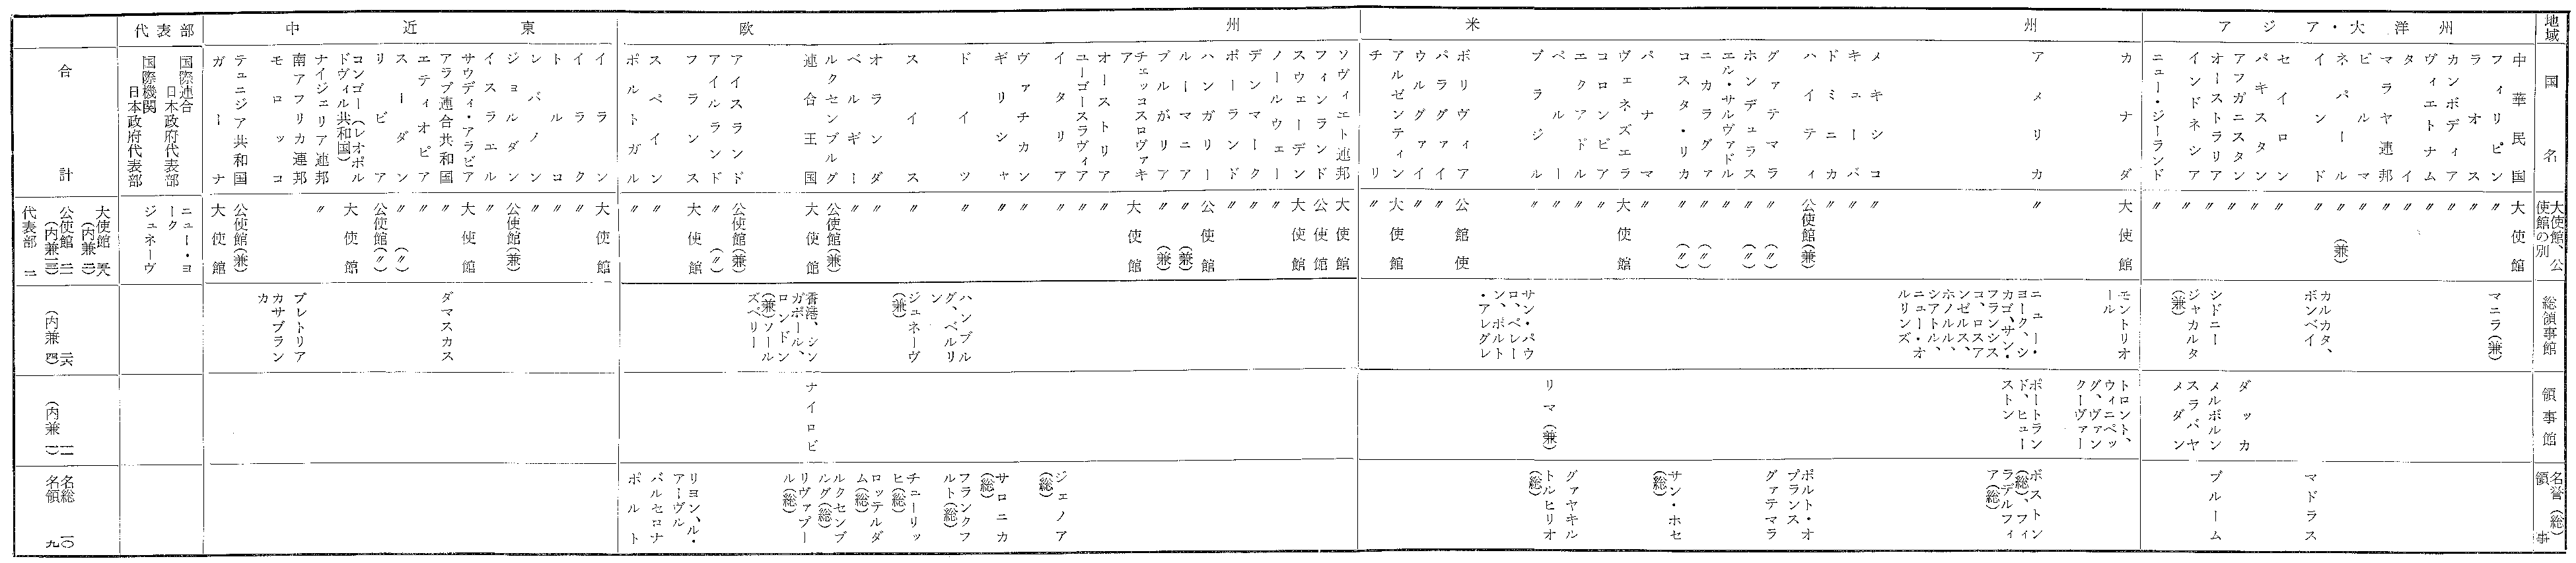 地域
国名
大使館、公使館の別
総領事館
領事館
名誉(総)領事
アジア・大洋州
中華民国 大使館
フィリピン 〃 マニラ(兼)
ラオス 〃
カンボディア 〃
ヴィエトナム 〃
タイ 〃
マラヤ連邦 〃
ビルマ 〃
ネパール 〃(兼)
インド 〃 カルカタ、ボンベイ マドラス
セイロン 〃
パキスタン 〃 ダッカ
アフガニスタン 〃
オーストラリア 〃 シドニー メルボルン ブルーム
インドネシア 〃 ジャカルタ(兼) スラバヤ メダン
ニュー・ジーランド 〃
米州
カナダ 大使館 モントリオール トロント、ウィニペッグ、ヴァンクーヴァー
アメリカ 〃 ニュー・ヨーク、シカゴ、サン・フランシスコ、ロスアンゼルス、ホノルル、シアトル、ニュー・オルリンズ ポートランド、ヒューストン ボストン(総)、フィラデルフィア(総)
メキシコ 〃
キューバ 〃
ドミニカ 〃
ハイティ 公使館(兼) ポルト・オプランス
グァテマラ 〃(〃) グァテマラ
ホンデュラス 〃(〃)
エル・サルヴァドル 〃
ニカラグァ 〃(〃)
コスタ・リカ 〃(〃) サン・ホセ(総)
パナマ 〃
ヴェネズエラ 大使館
コロンビア 〃
エクアドル 〃 グァヤキル
ペルー 〃 リマ(兼) トルヒリオ(総)
ブラジル 〃 サン・パウロ、ベレーン、ポルト・アレグレ
ボリヴィア 公館使
パラグァイ 〃
ウルグァイ 〃
アルゼンティン 大使館
チリ 〃
欧州
ソヴィエト連邦 大使館
フィンランド 公使館
スウェーデン 大使館
ノールウェー 〃
デンマーク 〃
ポーランド 〃
ハンガリー 公使館
ルーマニア 〃(兼)
ブルガリア 〃(兼)
チェッコスロヴァキア 大使館
オーストリア 〃
ユーゴースラヴィア 〃
イタリア 〃 ジェノア(総)
ヴァチカン 〃
ギリシャ 〃 サロニカ(総)
ドイツ 〃 ハンブルグ、ベルリン フランクフルト(総)
スイス 〃 ジュネーヴ(兼) チューリッヒ(総)
オランダ 〃 ロッテルダム(総)
ベルギー 〃
ルクセンブルグ 公使館(兼) ルクセンブルグ(総)
連合王国 大使館 香港、シンガポール、ロンドン(兼)ソールズベリー ナイロビ リヴァプール(総)
アイスランド 公使館(兼)
アイルランド 〃(〃)
フランス 大使館 リヨン、ル・アーヴル
スペイン 〃 バルセロナ
ポルトガル 〃 ポルト
中近東
イラン 大使館
イラク 〃
トルコ 〃
レバノン 〃
ジョルダン 公使館(兼)
イスラエル 〃
サウディ・アラビア 大使館
アラブ連合共和国 〃 ダマスカス
エティオピア 〃
スーダン 〃(〃)
リビア 公使館(〃)
コンゴー(レオポルドヴィル共和国) 大使館
ナイジェリア連邦 〃
南アフリカ連邦 プレトリア
モロッコ カサブランカ
テュニジア共和国 公使館(兼)
ガーナ 大使館
代表部
国際連合日本政府代表部 ニュー・ヨーク
国際機関日本政府代表部 ジュネーヴ
合計
大使館
(内兼 三)
公使館
(内兼
代表部 二
二六
(内兼 四)
一一
(内兼 一)
名総 一〇
名領 九